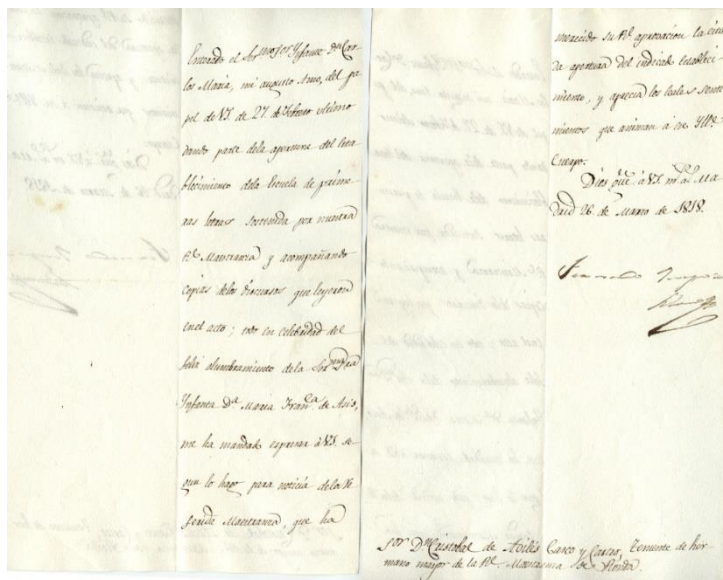 Enterado el Ser.mo Sor Infante Dn Car-
los Maria, mi augusto Amo, del pa-
pel de VS. de 27 de Febrero ultimo
dando parte dela apertura del esta-
blecimiento dela Escuela de prime-
ras letras sostenida por nuestra
Rl. Maestranza y acompañando
copias delos discursos que leyeron
en el acto; todo en celebridad del
feliz alumbramiento de la Ser.ma Sra
Ynfanta Da. Maria Fran.ca de Asis,
me ha mandado expresar à VS. se-
gun lo hago para noticia dela Re-
ferida Maestranza, que ha
merecido su Rl. aprovacion la
da apertura del indicado establec-
imiento, y aprecia los leales senti-
mientos que animan à ese Ylle.
Cuerpo.
Dios gûe. à VS. ms. as. Ma-
drid 26 de Marzo de 1818.
Sor. Dn. Cristobal de Avilés Casco y Castro, Teniente de her-
mano mayor de la Rl. Maestranza de Ronda.